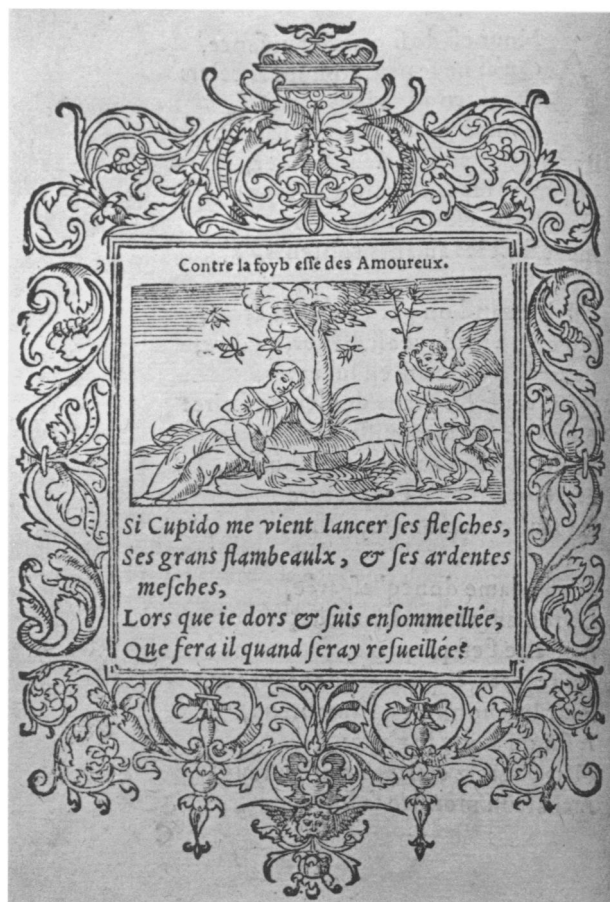 Contre la foyb esse des Amoureux.
Si Cupido me vient lancer ses flesches,
Ses grans flambeaulx, & ses ardentes
mesches,
Lors que ie dors & suis ensommeillée,
Que fera il quand seray resueillée?